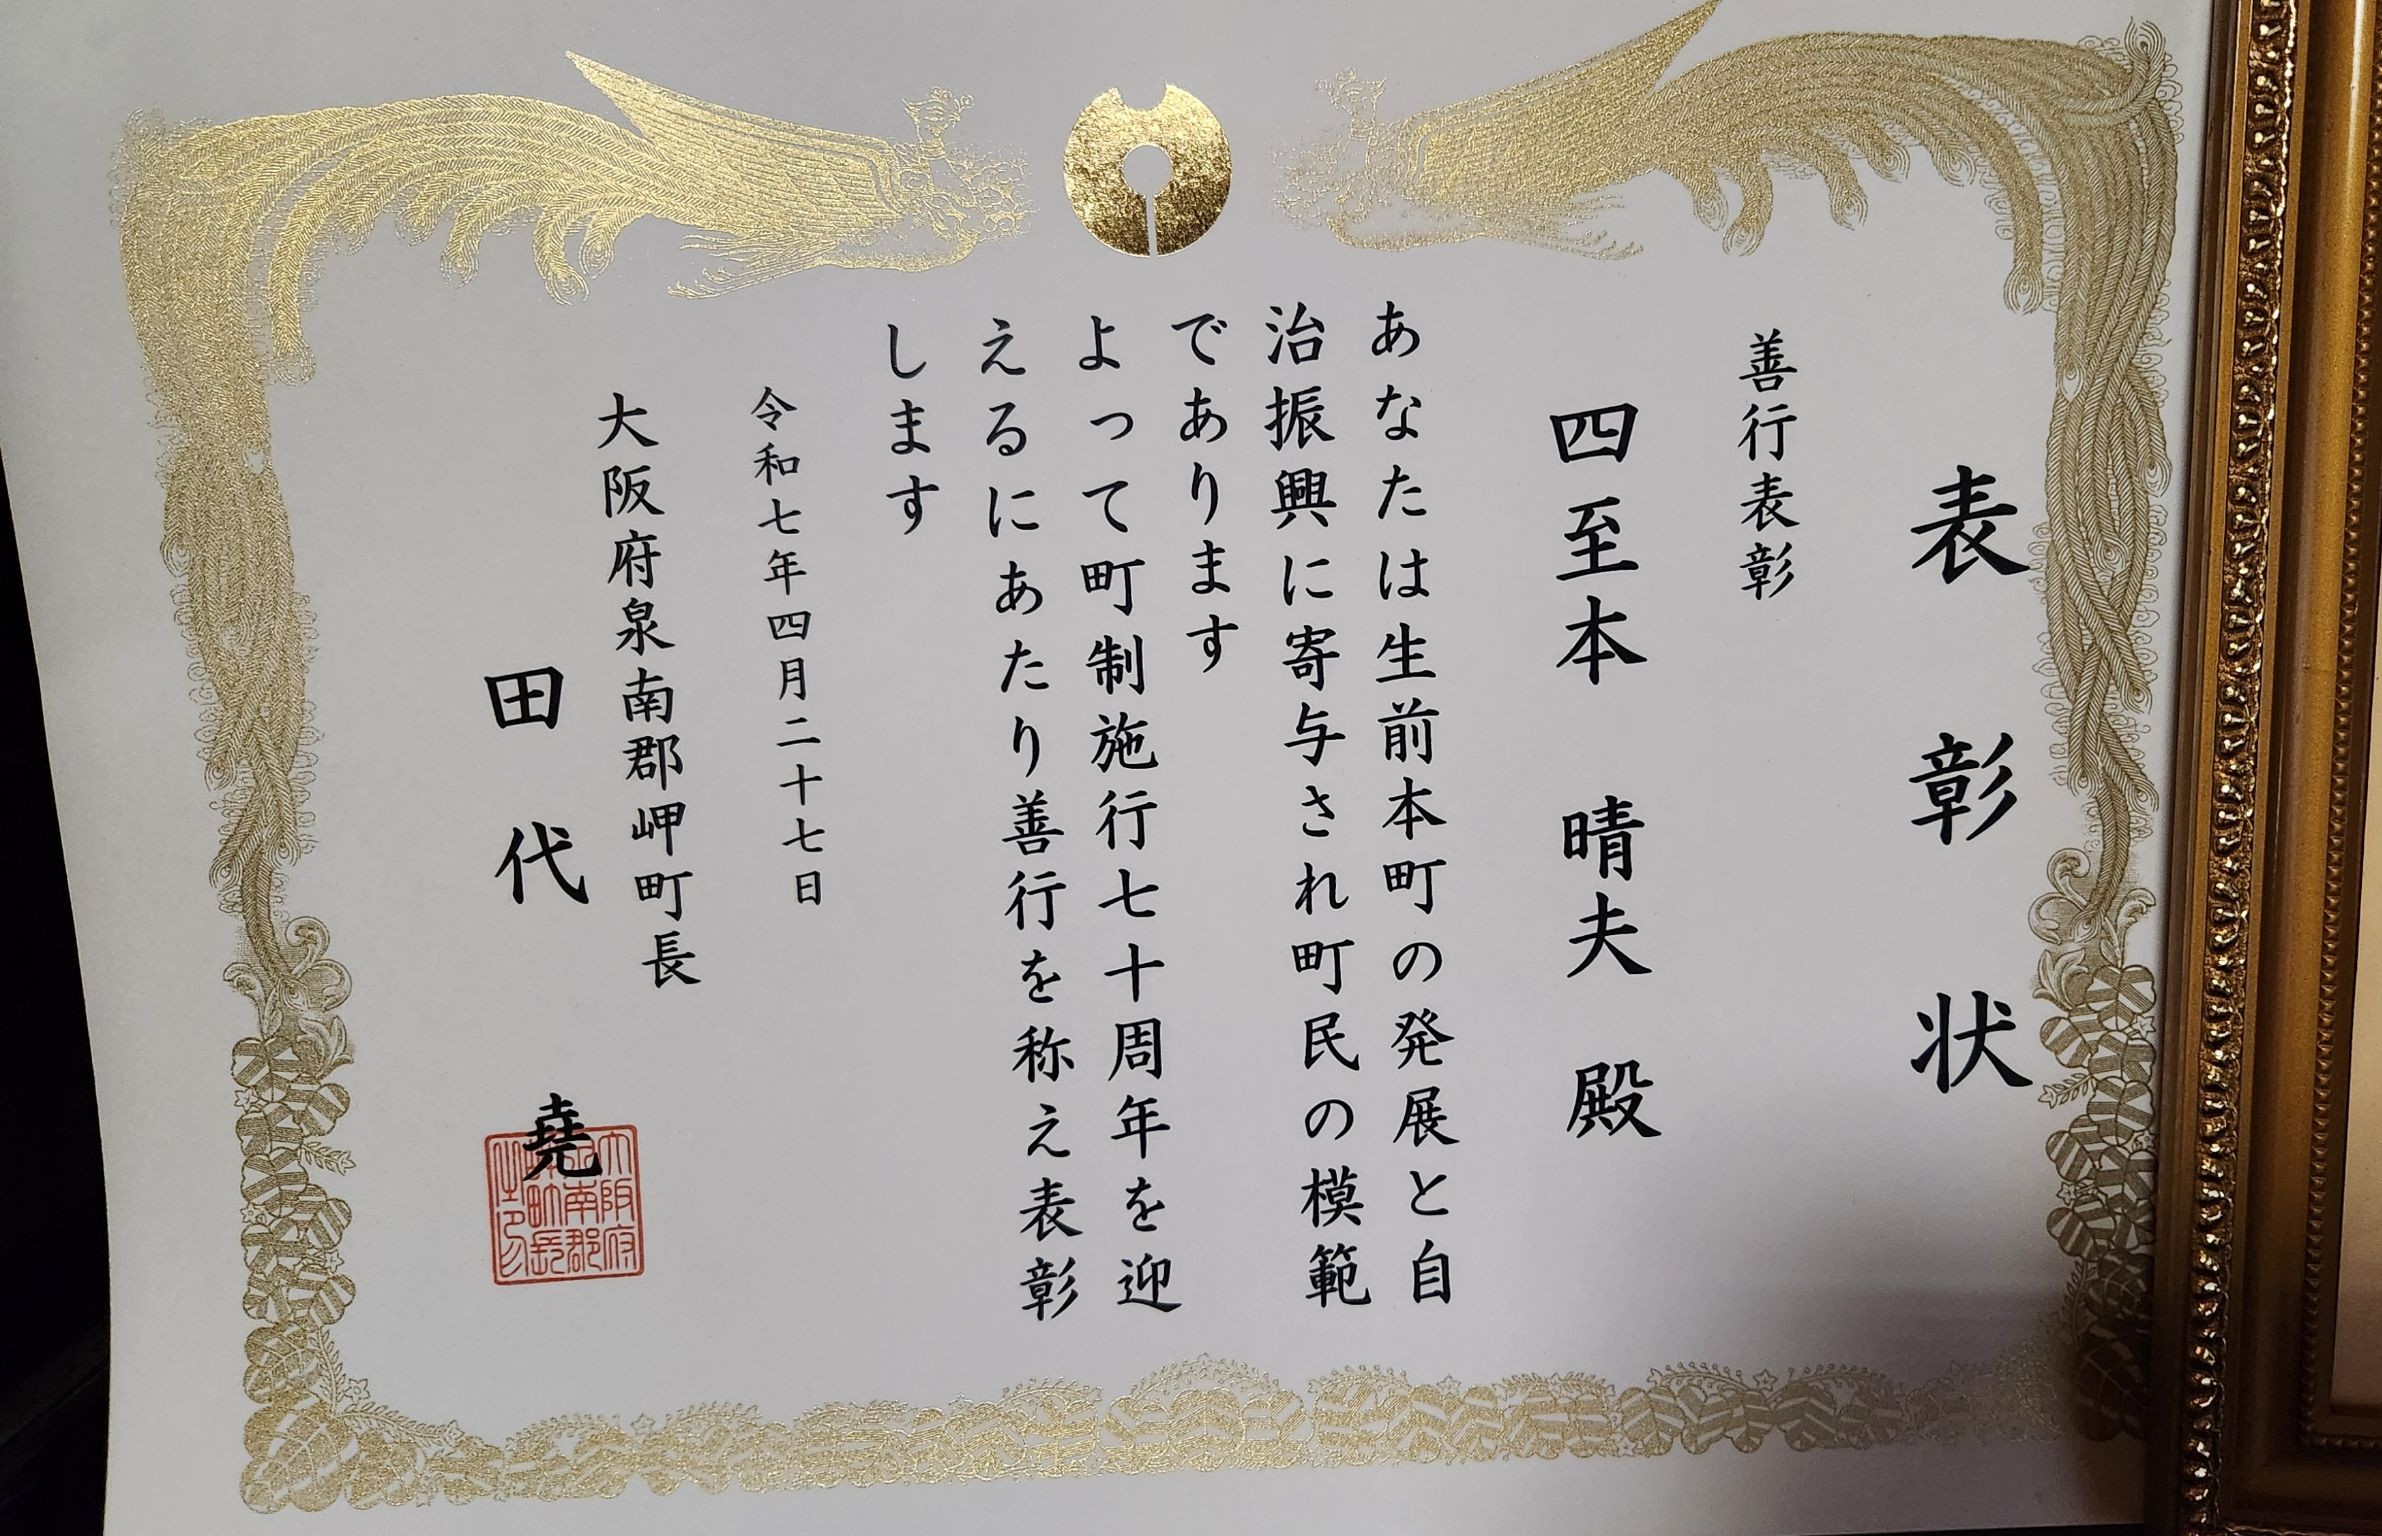 表彰状
善行表彰
四至本 晴夫 殿
あなたは生前本町の発展と自
治振興に寄与され町民の模範
であります
よって町制施行七十周年を迎
えるにあたり善行を称え表彰
します
令和七年四月二十七日
大阪府泉南郡岬町長
田代 堯
大阪府
泉南郡
岬町長
之印